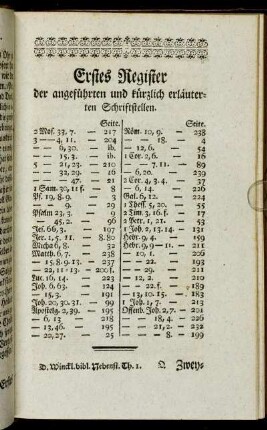 Erstes Register
der angeführten und kürzlich erläuter-
ten Schriftstellen.
Seite.
2 Mos. 33, 7. — 217
3 — 4, 11. — 204
— — 6, 30. — ib.
— — 15, 3. — ib.
5 — 21, 23. — 210
— 32, 29. — 16
— — 47. — 21
1 Sam. 30, 11 f. — 8
Ps. 19, 8. 9. — 3
— 9. — 29
Psalm 23, 3. — 9
— 45, 2. — 96
Jes. 66, 3. — 197
Jer. 1, 5. 11. — 8. 80
Micha 6, 8. — 32
Matth. 6, 7. — 238
— 15, 8. 9. 13. — 237
— 22, 11 - 13. — 200 f.
Luc. 16, 14. — 223
Joh. 6, 63. — 124
— 15, 3. — 191
Joh. 20, 30. 31. — 99
Apostelg. 2, 39. — 195
— 6, 13 — 218
— 13, 46. — 195
— 20, 27. — 25
Seite.
Röm. 10, 9. — 238
— — 18. — 4
— 12, 6. — 54
1 Cor. 2, 6. — 16
— — — 89
— 6, 20. — 239
2 Cor. 4, 3. 4. — 37
— 6, 14. — 220
Gal. 6, 12. — 224
1 Thess. 5, 20. — 55
2 Tim. 3, 16. f. — 17
2 Petr. 1, 21. — 53
1 Joh. 2, 13. 14. — 131
Hebr. 9, 4. — 159
Hebr. 9, 9 — 11. — 211
— — 10. — 201
— — 22. — 193
— — 29. — 211
— 12, 2. — 210
— — 22. f. — 189
— 13, 10. 15. — 183
1 Joh. 1, 7. — 213
Offenb. Joh. 2, 7. — 201
— — 16, 18. — 188
— — 21, 2. — 232
— — 8. — 199
D. Winckl. bibl. Nebenst. Th. 1. Q Zwey-